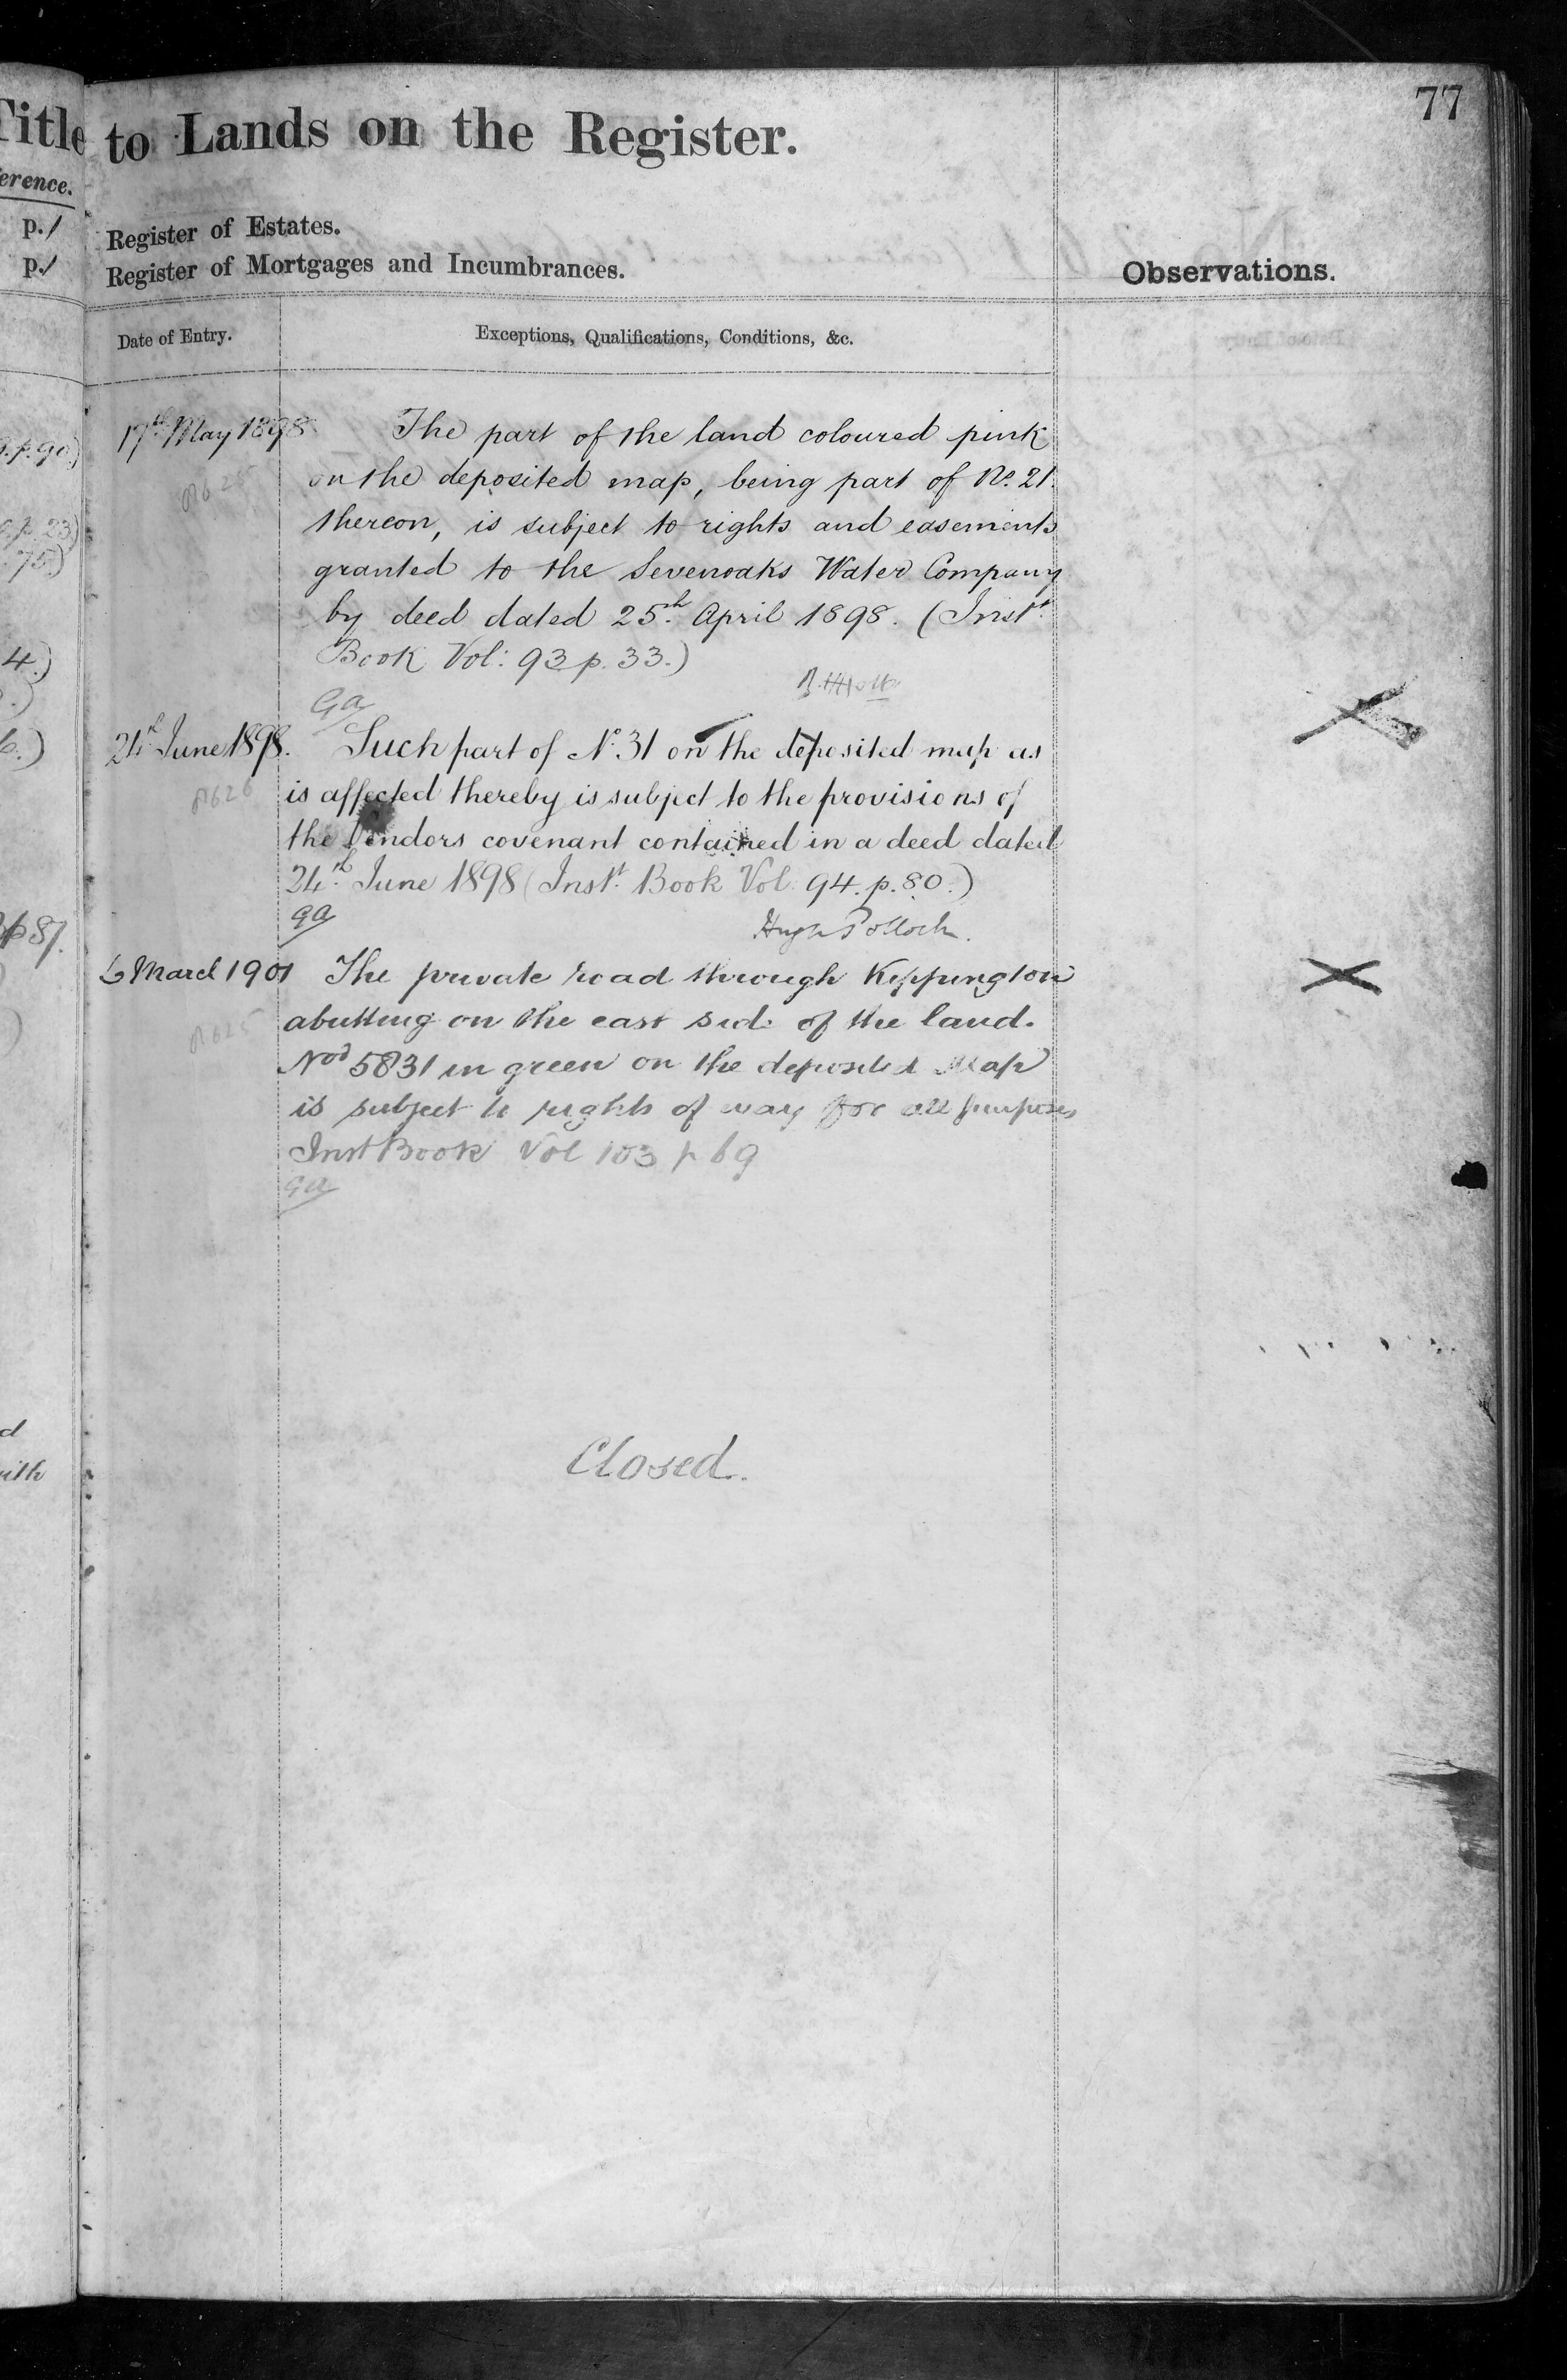 77
Title to Lands on the Register.
erence.
p. Register of Estates.
p. Register of Mortgages and Incumbrances.
Observations.
Date of Entry. Exceptions, Qualifications, Conditions, &c.
17th May 1898. The part of the land coloured pink
on the deposited map, being part of No. 21.
thereon, is subject to rights and easements
granted to the Sevenoaks Water Company
by deed dated 25th April 1898. (Inst.
Book Vol: 93 p. 33.)
GA
24th June 1898. Such part of No 31 on the deposited map as
is affected thereby is subject to the provisions of
the Vendors covenant contained in a deed dated
24th June 1898 (Inst. Book Vol. 94. p. 80.)
GA
Hugh Pollock.
6 March 1901 The private road through Kippington
abutting on the east side of the land.
Nod 5831 in green on the deposited Map
is subject to rights of way for all purposes
Inst Book Vol 103 p 69
GA
Closed.